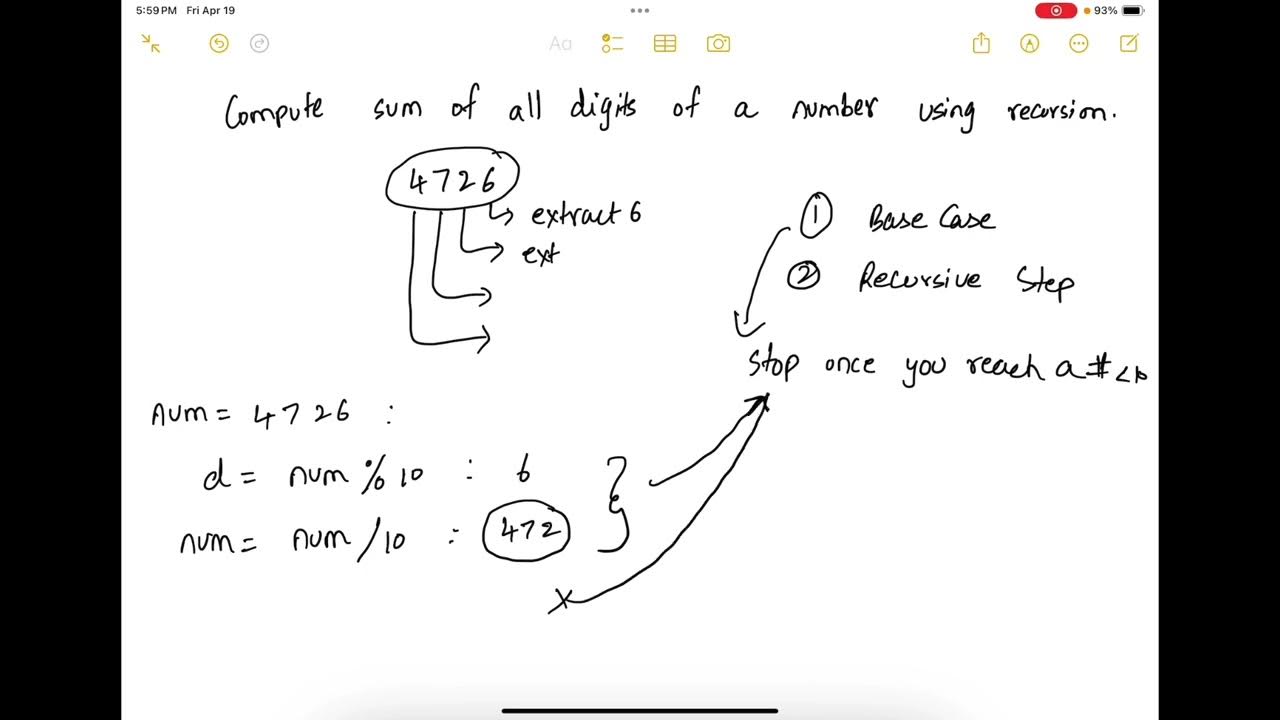 5:59 PM Fri Apr 19
93%
Aa
Compute sum of all digits of a number using recursion.
4726
extract 6
ext
① Base Case
② Recursive Step
Stop once you reach a # <10
num = 4726 :
d = num % 10 : 6
num = num / 10 : 472